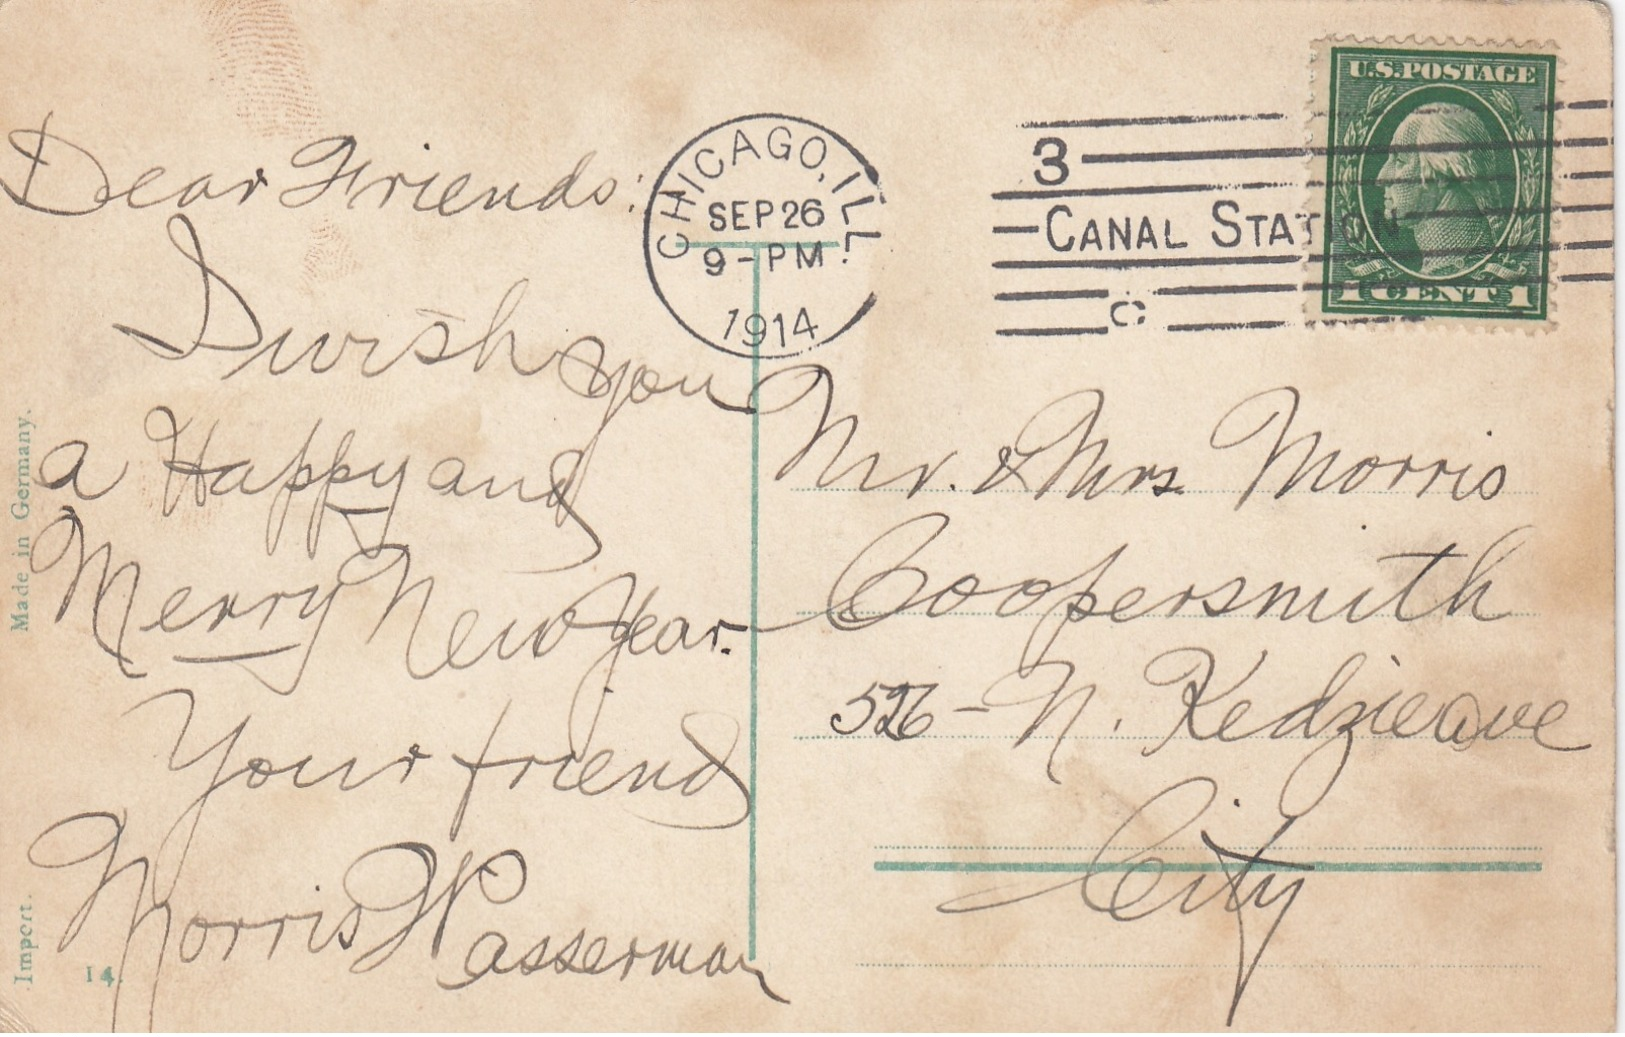 Dear Friends:
I wish you
a Happy and
Merry New Year.
Your friend
Morris Wasserman
Made in Germany.
Import.
14.
CHICAGO, ILL.
SEP 26
9-PM
1914
3
CANAL STATION
C
U.S. POSTAGE
1 CENT 1
Mr. & Mrs Morris
Coopersmith
526 - N. Kedzie ave
City